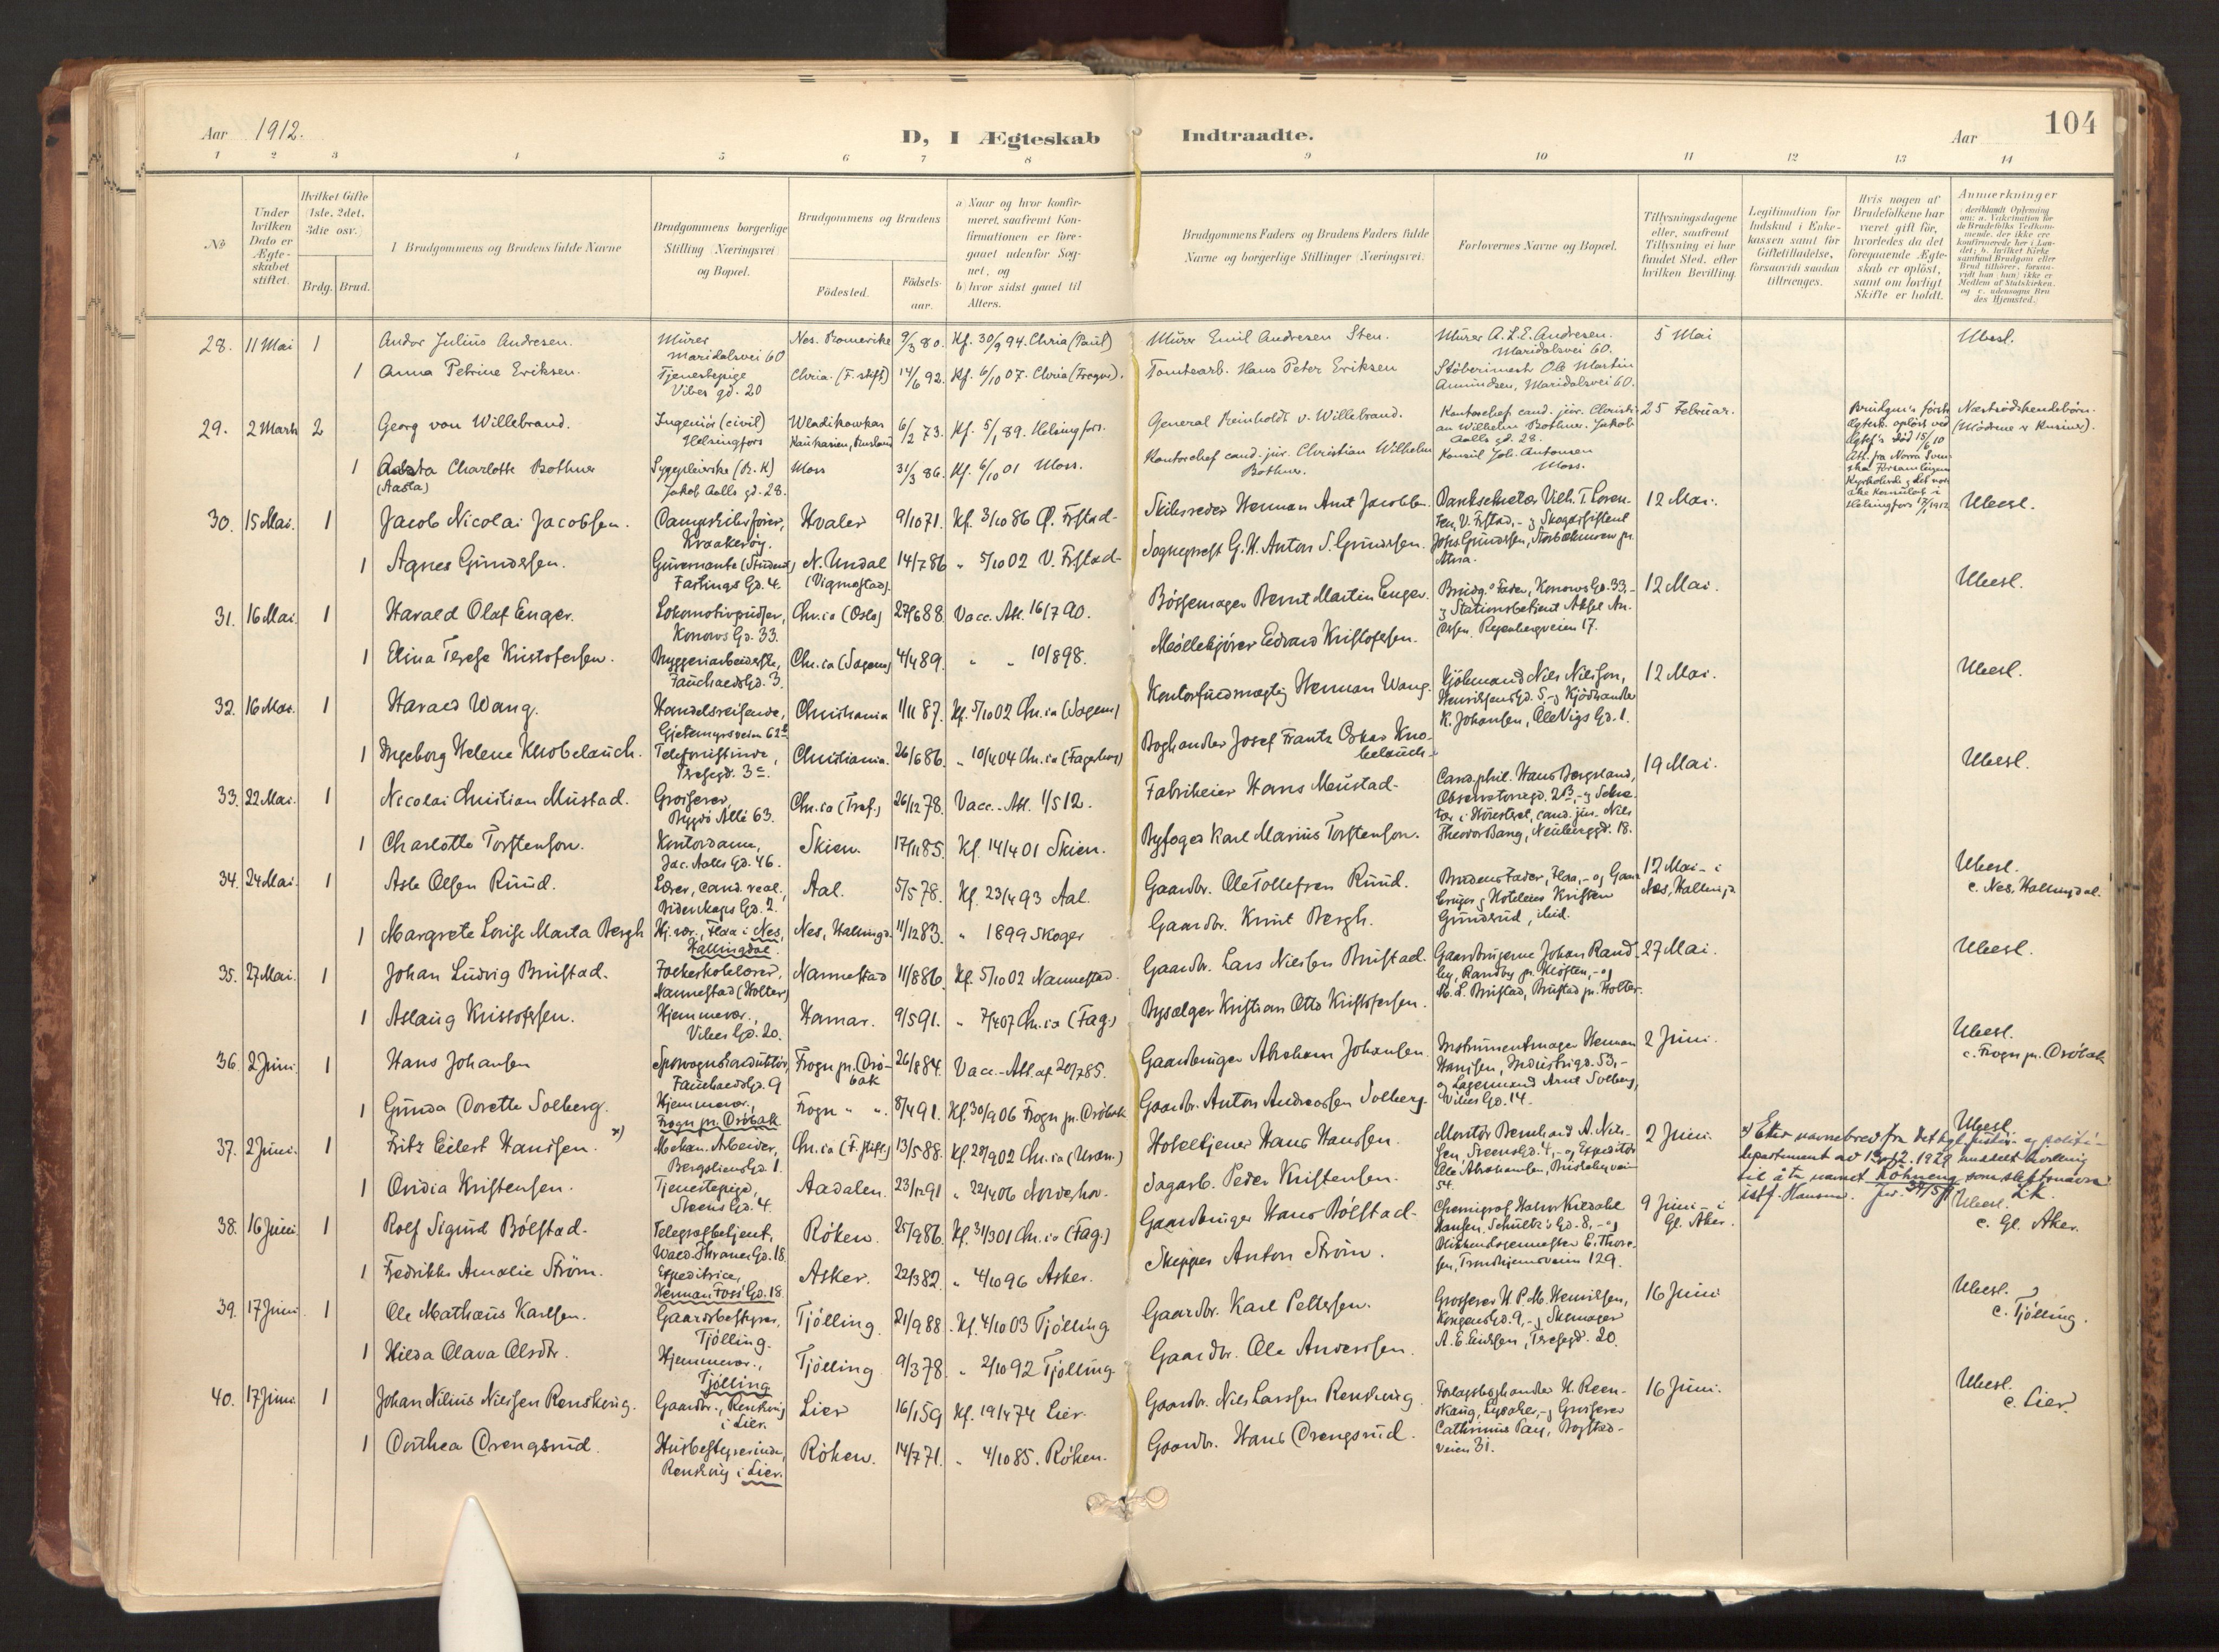 Aar 1912.
D, I Ægteskab Indtraadte.
Aar
104
1 2 3 4 5 6 7 8 9 10 11 12 13 14
No
Under hvilken Dato er Ægteskabet stiftet.
Hvilket Gifte (1ste, 2det, 3die osv.)
Brdg. Brud.
Brudgommens og Brudens fulde Navne
Brudgommens borgerlige Stilling (Næringsvei) og Bopæl.
Brudgommens og Brudens
Födested.
Födselsaar.
a) Naar og hvor konfirmeret, saafremt Konfirmationen er foregaaet udenfor Sognet, og
b) hvor sidst gaaet til Alters.
Brudgommens Faders og Brudens Faders fulde Navne og borgerlige Stillinger (Næringsvei).
Forlovernes Navne og Bopæl.
Tillysningsdagene eller, saafremt Tillysning ei har fundet Sted, efter hvilken Bevilling.
Legitimation for Indskud i Enkekassen samt for Giftetilladelse, forsaavidt saadan tiltrænges.
Hvis nogen af Brudefolkene har været gift før, hvorledes da det foregaaende Ægteskab er oplöst, samt om lovligt Skifte er holdt.
Anmærkninger
28. 11 Mai 1 Andor Julius Andresen. Murer Maridalsvei 60 Nes. Romerike 9/3 80. Kf. 30/9 94. Chria (Paul) Murer Emil Andresen Sten. Murer A. L. E. Andresen. Maridalsvei 60. 5 Mai Ubesl.
1 Anna Petrine Eriksen. Tjenestepige Vibes gd. 20 Chria. (F. stift) 14/6 92. Kf. 6/10 07. Chria (Frogn.). Tomtearb. Hans Peter Eriksen Støberimest. Ole Martin Amundsen, Maridalsvei 60.
29. 2 Marts 2 Georg von Willebrand. Ingeniør (civil) Helsingfors Wladikawkas Kaukasien, Rusland 6/2 73. Kf. 5/1 89. Helsingfors. General Reinholdt v. Willebrand. Kontorchef cand. jur. Christian Wilhelm Bothner. Jakob Aalls gd. 28. 25 Februar. Næstsødskendebørn. (Mødrene v Kusiner).
1 Charlotte Bothner (Aasta) Sygepleierske (R. K) Jakob Aalls gd. 28. Moss 31/3 86. Kf. 6/10 01 Moss. Kontorchef cand. jur. Christian Wilhelm Bothner. Konsul Joh. Antonsen Moss.
30. 15 Mai. 1 Jacob Nicolai Jacobsen. Dampskibsfører, Kraakerøy. Hvaler 9/10 71. Kf. 3/10 86 Ø. Frstad. Skibsreder Herman Amt Jacobsen. Banksekretær Vilh. T. Lorentzen, V. Frstad, - 12 Mai. Ubesl.
1 Agnes Gundersen. Guvernante (Student) Fastings Gd. 4. N. Undal (Vigmostad). 14/7 86 " 5/10 02 V. Frstad. Sogneprest G. K. Anton S. Gundersen.
31. 16 Mai. 1 Harald Olaf Enger. Lokomotivpudser, Konows Gd. 33. Chr.ia (Oslo) 27/6 88. Vacc. Att. 16/7 90. Børsemager Bernt Martin Enger. Brudg.s Fader, Konows Gd. 33, - og Stationsbetjent Aksel Andersen, Ryenbergveien 17. 12 Mai. Ubesl.
1 Elina Terese Kristofersen. Bryggeriarbeiderske, Fauchalds Gd. 3. Chr.ia (Sagene) 4/4 89. " " 10/8 98. Møllekjører Edvard Kristofersen.
32. 16 Mai. 1 Harald Wang. Handelsreisende, Gjetemyrsveien 62 Christiania 1/11 87. Kf. 5/10 02 Chr.ia (Sagene) Kontorfuldmægtig Herman Wang. Kjøbmand Nils Nilssen, Henriksens Gd. 5, - og Kjødhandler K. Johansen, Ole Vigs Gd. 1. 12 Mai. Ubesl.
1 Ingeborg Helene Knobelauch. Telefonistinde, Teresegd. 3 Christiania. 26/6 86. " 10/4 04 Chr.ia (Fagerborg) Boghandler Josef Frantz Oskar Knobelauch.
33. 22 Mai. 1 Nicolai Christian Mustad. Grosserer, Bygdø Allé 63. Chr.ia (Tref.) 26/12 78. Vacc. Att. 1/5 12. Fabrikeier Hans Mustad. Cand. phil. Hans Bergsland, Observatoriegd. 2B, - og Sekretær i Høiesteret, cand. jur. Nils Theodor Bang, Neuberggd. 18. 19 Mai. Ubesl.
1 Charlotte Torstenson. Kontordame, Jac. Aalls Gd. 46. Skien. 17/11 85. Kf. 14/4 01 Skien. Byfoged Karl Marius Torstenson.
34. 24 Mai. 1 Asle Olsen Ruud. Lærer, cand. real., Bidenkaps Gd. 2. Aal. 5/5 78. Kf. 23/4 93 Aal. Gaardbr. Ole Tollefsen Ruud. Brudens Fader, Flaa, - og Gaardbruger og Hoteleier Kristen Gundersrud, ibid. 12 Mai - i Nes, Hallingd. Ubesl. c. Nes, Hallingdal.
1 Margrete Lovise Marta Bergh Hj. vær., Flaa i Nes, Hallingdal. Nes, Hallingd. 11/12 83. " 1899 Skoger Gaardbr. Knut Bergh.
35. 27 Mai. 1 Johan Ludvig Brustad. Folkeskolelærer, Nannestad (Holter) Nannestad 11/8 86. Kf. 5/10 02 Nannestad. Gaardbr. Lars Nielsen Brustad. Gaardbrugerne Johan Randby, Randby pr. Kløften, - og M. L. Brustad, Brustad pr. Holter. 27 Mai. Ubesl.
1 Aslaug Kristofersen. Hjemmevær., Vibes Gd. 20. Hamar. 9/5 91. " 7/4 07 Chr.ia (Fag.) Bysælger Kristian Otto Kristofersen.
36. 2 Juni 1 Hans Johansen Sporvognskonduktør, Fauchalds Gd. 9 Frogn pr. Drøbak 26/8 84. Vacc.-Att. af 20/7 85. Gaardbruger Abraham Johansen. Instrumentmager Herman Hansen, Industrigd. 53, - og Lagermand Arnt Solberg, Vibes Gd. 14. 2 Juni. Ubesl. c. Frogn pr. Drøbak
1 Gunda Dorette Solberg. Hjemmevær., Frogn pr. Drøbak Frogn " ". 8/4 91. Kf. 30/9 06 Frogn pr. Drøbak Gaardbr. Anton Andreassen Solberg.
37. 2 Juni. 1 Fritz Eilert Hanssen. x) Mekan. Arbeider, Bergsliens Gd. 1. Chr.ia (F. stift.) 13/5 88. Kf. 28/9 02 Chr.ia (Uran.) Hoteltjener Hans Hanssen. Montør Bernhard A. Nilsen, Steens Gd. 4, - og Expeditør Ole Abrahamsen, 54. 2 Juni. Ubesl.
x) Efter navnebrev fra Det kgl. justis- og politidepartement av 12 1929 meddelt bevilling til å ta navnet Röhneng som slektsnavn istf. Hansen.
1 Ovidia Kristensen. Tjenestepige, Steens Gd. 4. Aadalen. 23/12 91 " 22/4 06 Norderhov. Sagarb. Peder Kristensen.
38. 16 Juni. 1 Rolf Sigurd Bølstad. Telegrafbetjent, Wald. Thranes Gd. 18. Røken. 25/9 86. Kf. 31/3 01 Chr.ia (Fag.) Gaardbruger Hans Bølstad. Chemigraf Halvor Kildahl Hansen, Schultz's Gd. 8, - og E. Thoresen, Trondhjemsveien 129. 9 Juni - i Gl. Aker. Ubesl. c. Gl. Aker.
1 Fredrikke Amalie Strøm. Expeditrice, Herman Foss' Gd. 18 Asker. 22/3 82. " 4/10 96 Asker. Skipper Anton Strøm.
39. 17 Juni 1 Ole Mathæus Karlsen. Gaardbestyrer, Tjølling. Tjølling. 21/9 88. Kf. 4/10 03 Tjølling Gaardbr. Karl Pettersen. Grosserer H. P. M. Henriksen, Kongens Gd. 9, - og Skomager A. E. Eriksen, Teresegd. 20. 16 Juni Ubesl. c. Tjølling.
1 Hilda Olava Olsdtr. Hjemmevær., Tjølling Tjølling 9/3 78. " 2/10 92 Tjølling Gaardbr. Ole Anderssen.
40. 17 Juni 1 Johan Nilius Nielsen Renskoug. Gaardbr., Renskoug i Lier. Lier 16/1 59 Kf. 19/4 74 Lier. Gaardbr. Niels Larssen Renskoug Forlagsboghandler H. Reenskaug, Lysaker, - og Grosserer Cathrinus Pay, Bogstadveien 31. 16 Juni. Ubesl. c. Lier.
1 Dorthea Drengsrud. Husbestyrerinde, Renskoug i Lier. Røken. 14/7 71. " 4/10 85. Røken. Gaardbr. Hans Drengsrud.